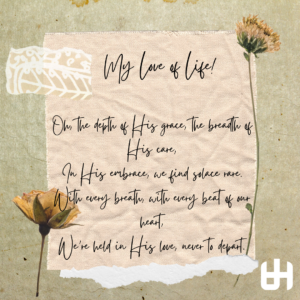 My Love of Life!
Oh, the depth of His grace, the breadth of
His care,
In His embrace, we find solace rare.
With every breath, with every beat of our
heart,
We're held in His love, never to depart.